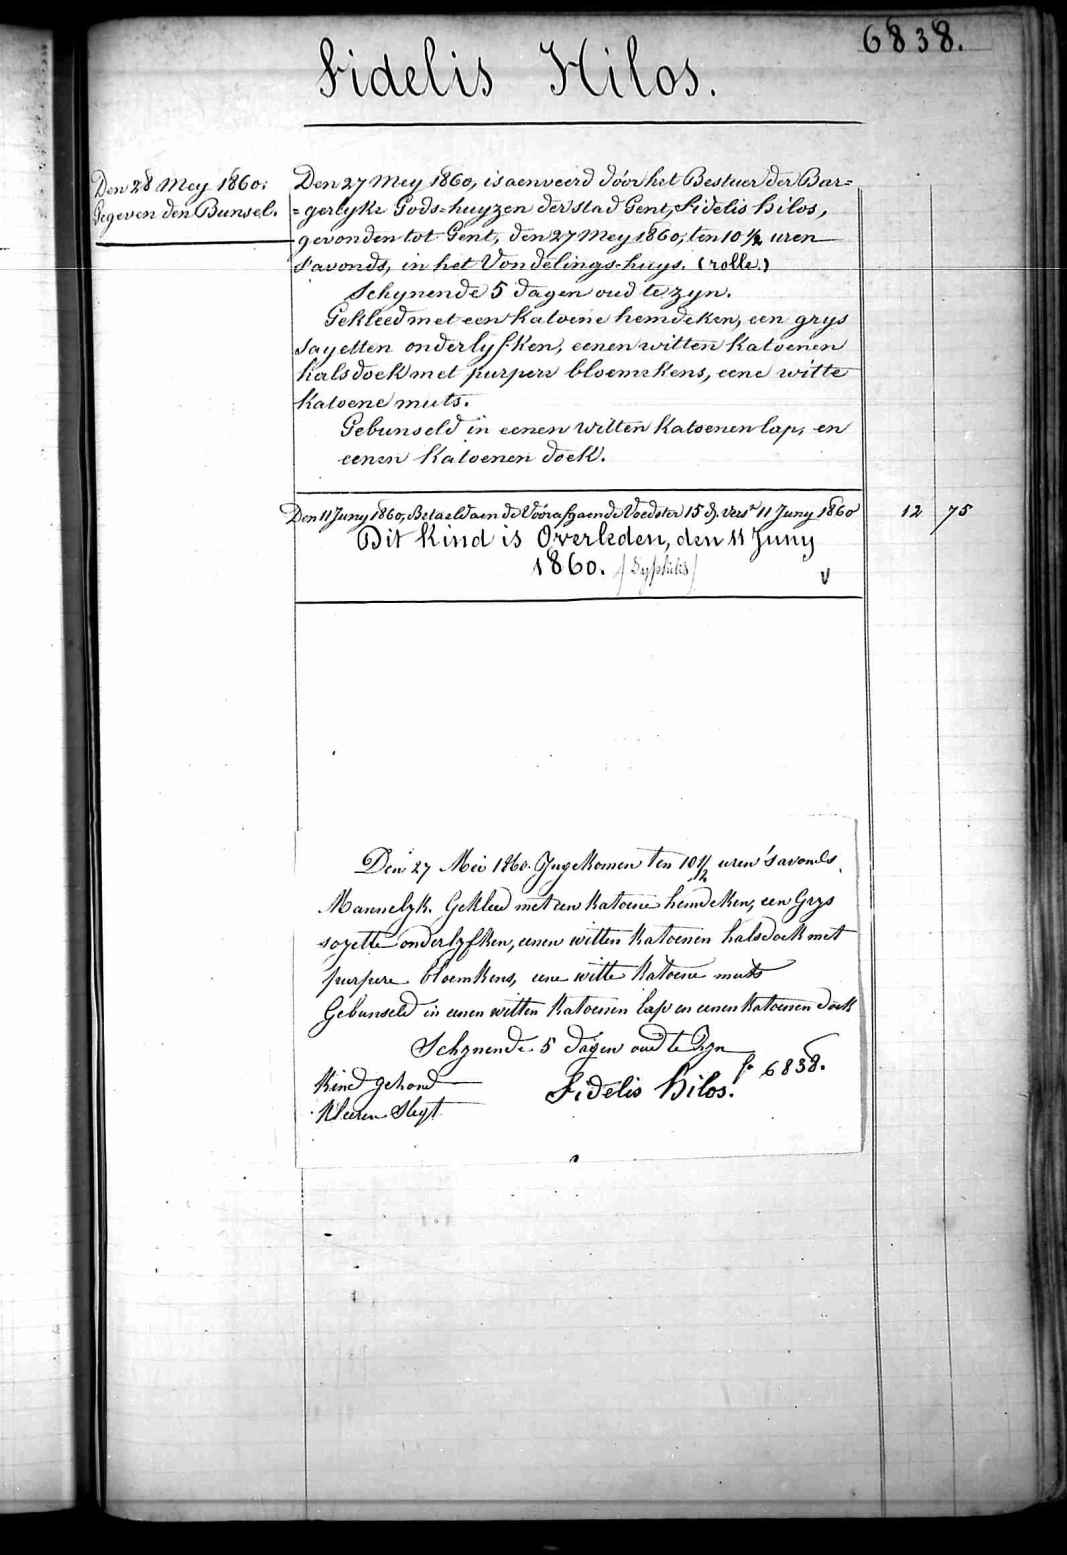 6838.
Fidelis Hilos.
Den 28 Mey 1860:
Gegeven den Bunsel.
Den 27 Mey 1860, is aenveerd dóór het Bestuer der Bur=
=gerlyke Gods=huyzen der stad Gent, Fidelis Hilos,
gevonden tot Gent, den 27 Mey 1860, ten 10 ½ uren
s'avonds, in het Vondelings-huys. (rolle.)
Schynende 5 dagen oud te zyn.
Gekleed met een katoene hemdeken, een grys
sayetten onderlyfken, eenen witten katoenen
halsdoek met purpere bloemekens, eene witte
katoene muts.
Gebunseld in eenen witten katoenen lap, en
eenen katoenen doek.
Den 11 Juny 1860, Betaeld aen de Vóórafgaende Voedster 15 d. vers.t 11 Juny 1860 12 75
Dit kind is Overleden, den 11 Juny
1860. (Syphilis)
V
Den 27 Mei 1860. Ingekomen ten 10 1/2 uren 's avonds.
Mannelyk. Gekleed met een katoene hemdeken, een Grys
sayette onderlyfken, eenen witten katoenen halsdoek met
purpere bloemkens, eene witte katoene muts
Gebunseld in eenen witten katoenen lap en eenen katoenen doek
Schynende 5 dagen oud te Zyn
Kind gezond
f.o 6838.
Fidelis Hilos.
Kleeren Slegt